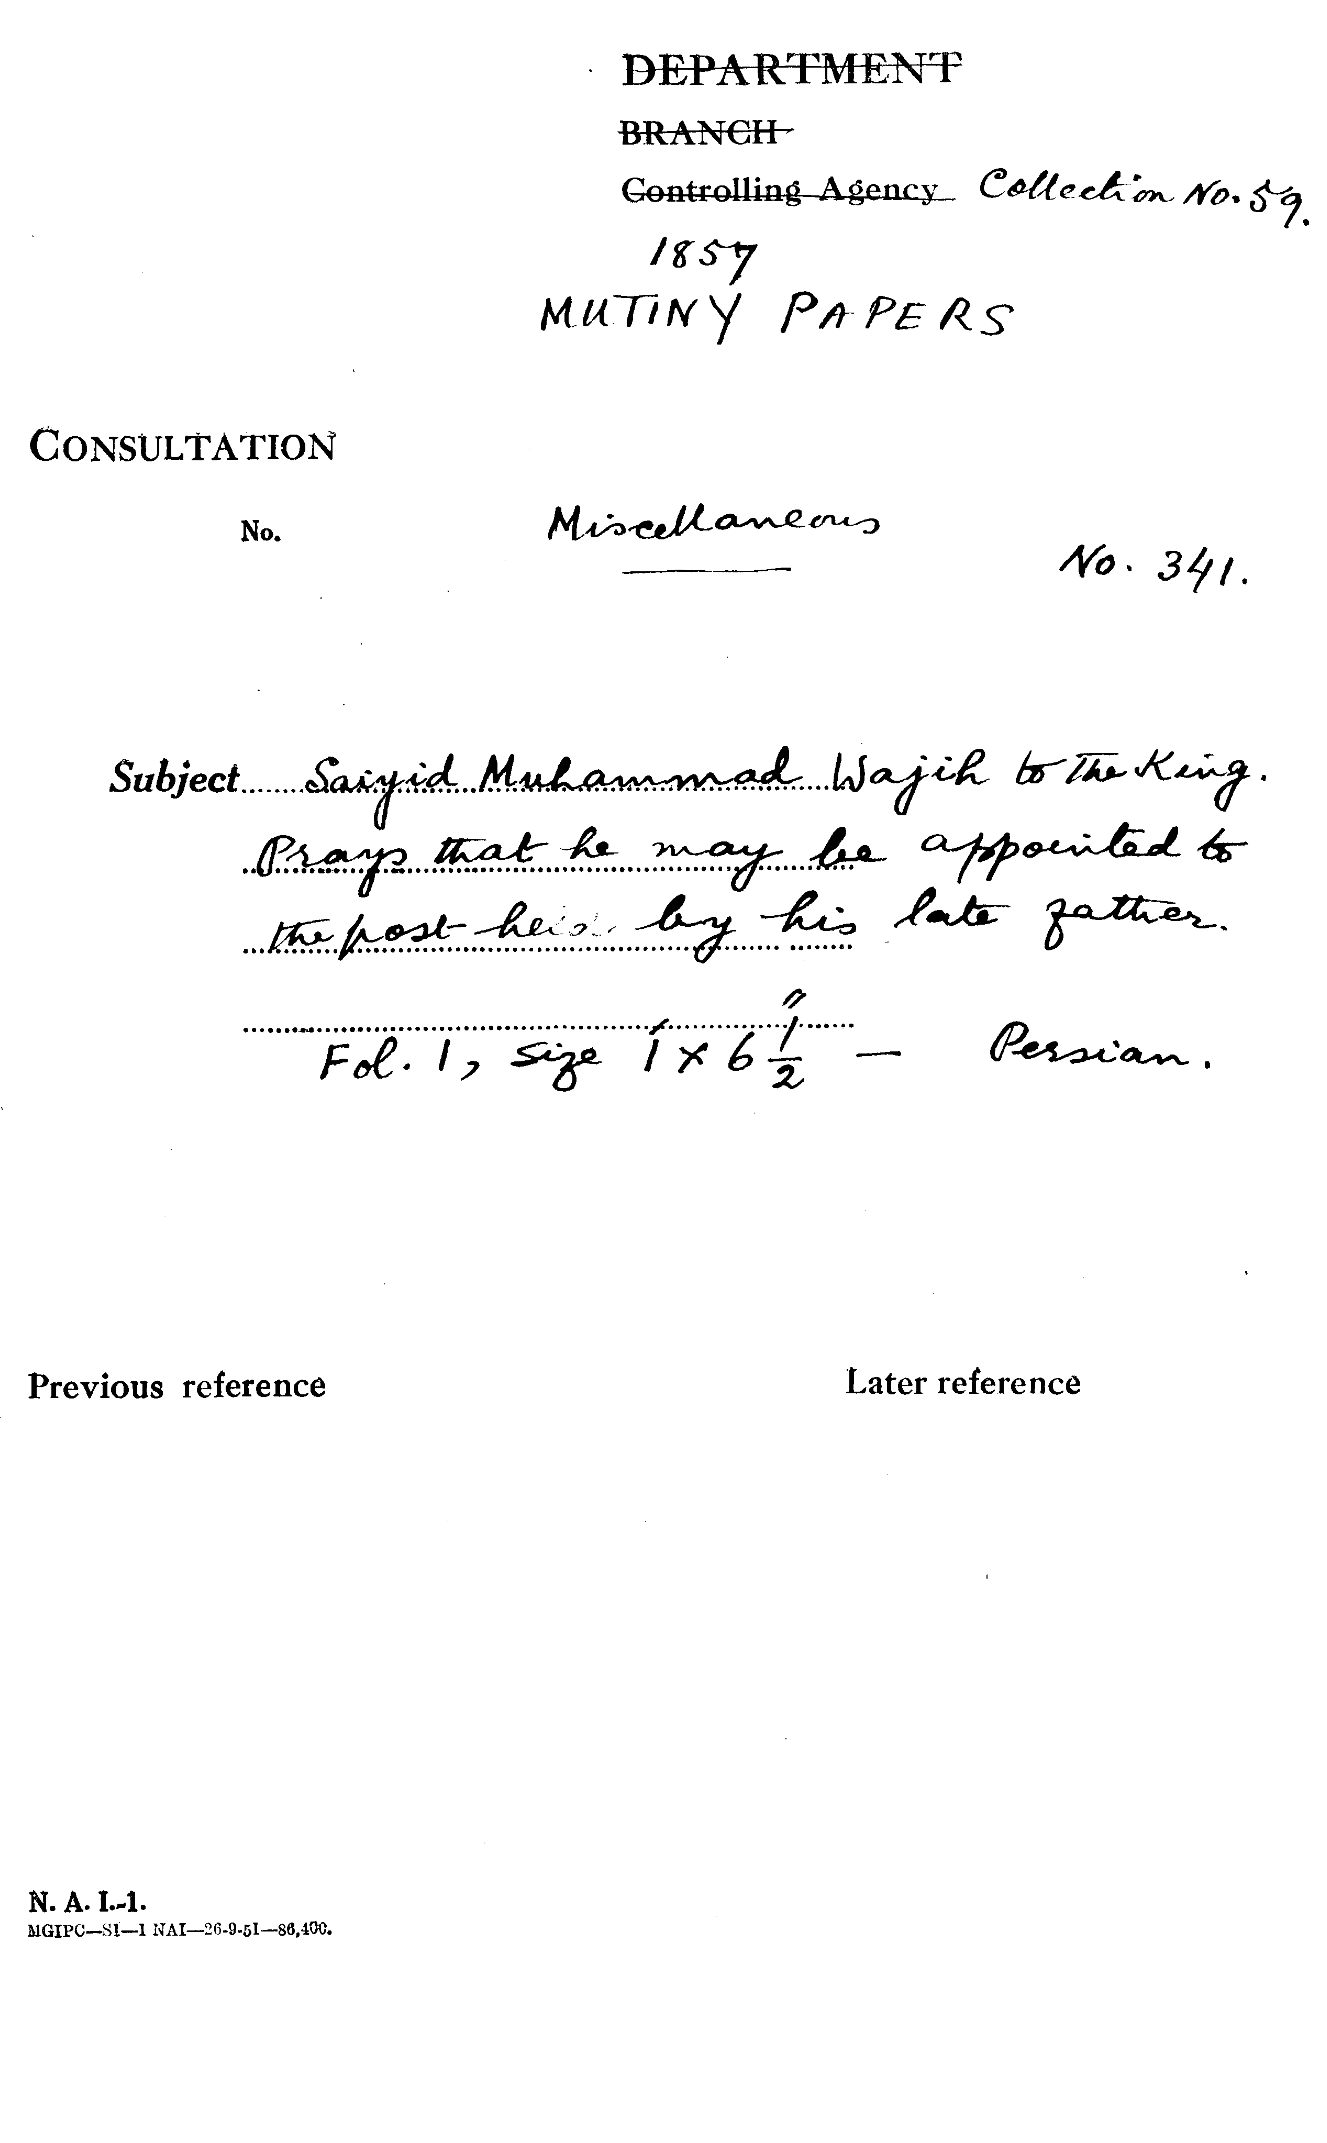 DEPARTMENT
BRANCH
Controlling Agency Collection No. 59.
1857
MUTINY PAPERS
CONSULTATION
No. Miscellaneous
No. 341.
Subject Saiyid Muhammad Wajih to the King.
Prays that he may be appointed to
the post held by his late father.
Fol. 1, size 1' x 6 1/2" — Persian.
Previous reference Later reference
N. A. I.-1.
MGIPC—S1—1 NAI—26-9-51—86,400.